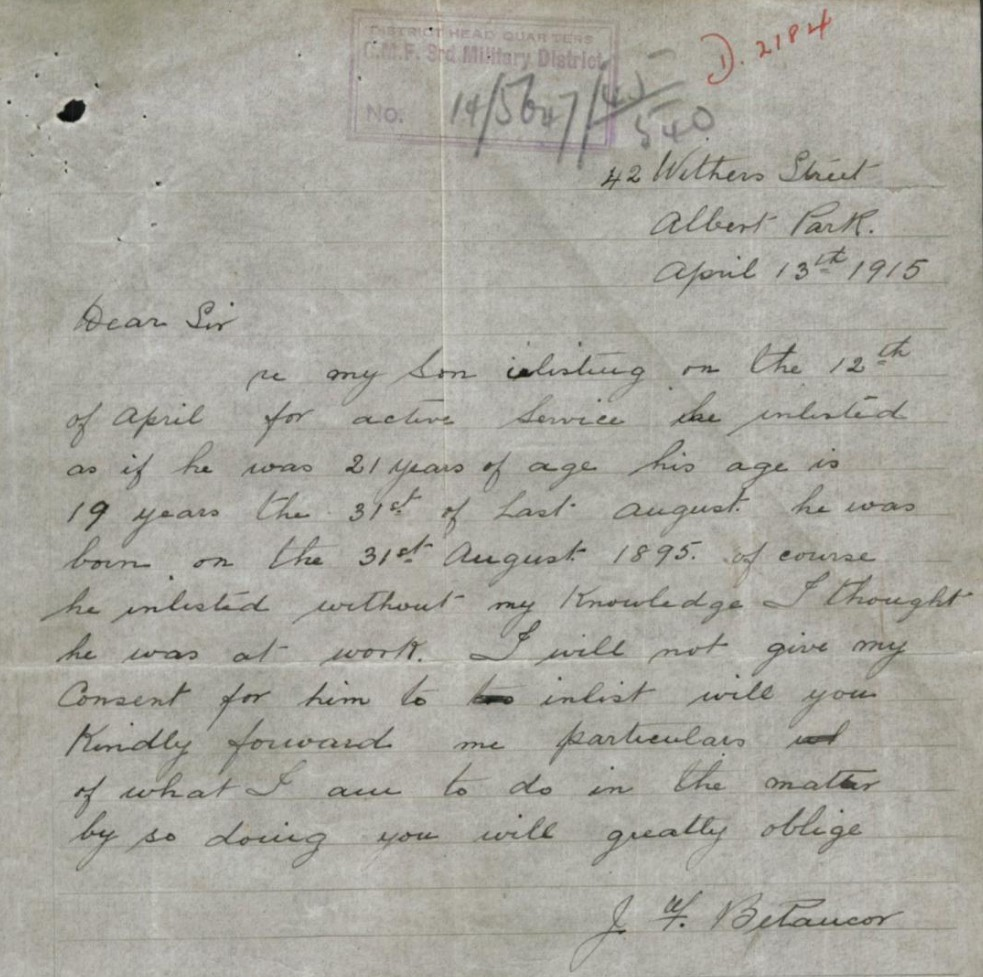 DISTRICT HEAD QUARTERS
C.M.F. 3rd Military District
NO. 14/5647/
540
D. 2184
42 Withers Street
Albert Park.
April 13th 1915
Dear Sir
re my Son inlisting on the 12th
of April for active Service he inlisted
as if he was 21 years of age his age is
19 years the 31st of Last august. he was
born on the 31st August 1895. of course
he inlisted without my Knowledge I thought
he was at work. I will not give my
Consent for him to to inlist will you
Kindly forward me particulars
of what I am to do in the matter
by so doing you will greatly oblige
J. F. Betancor